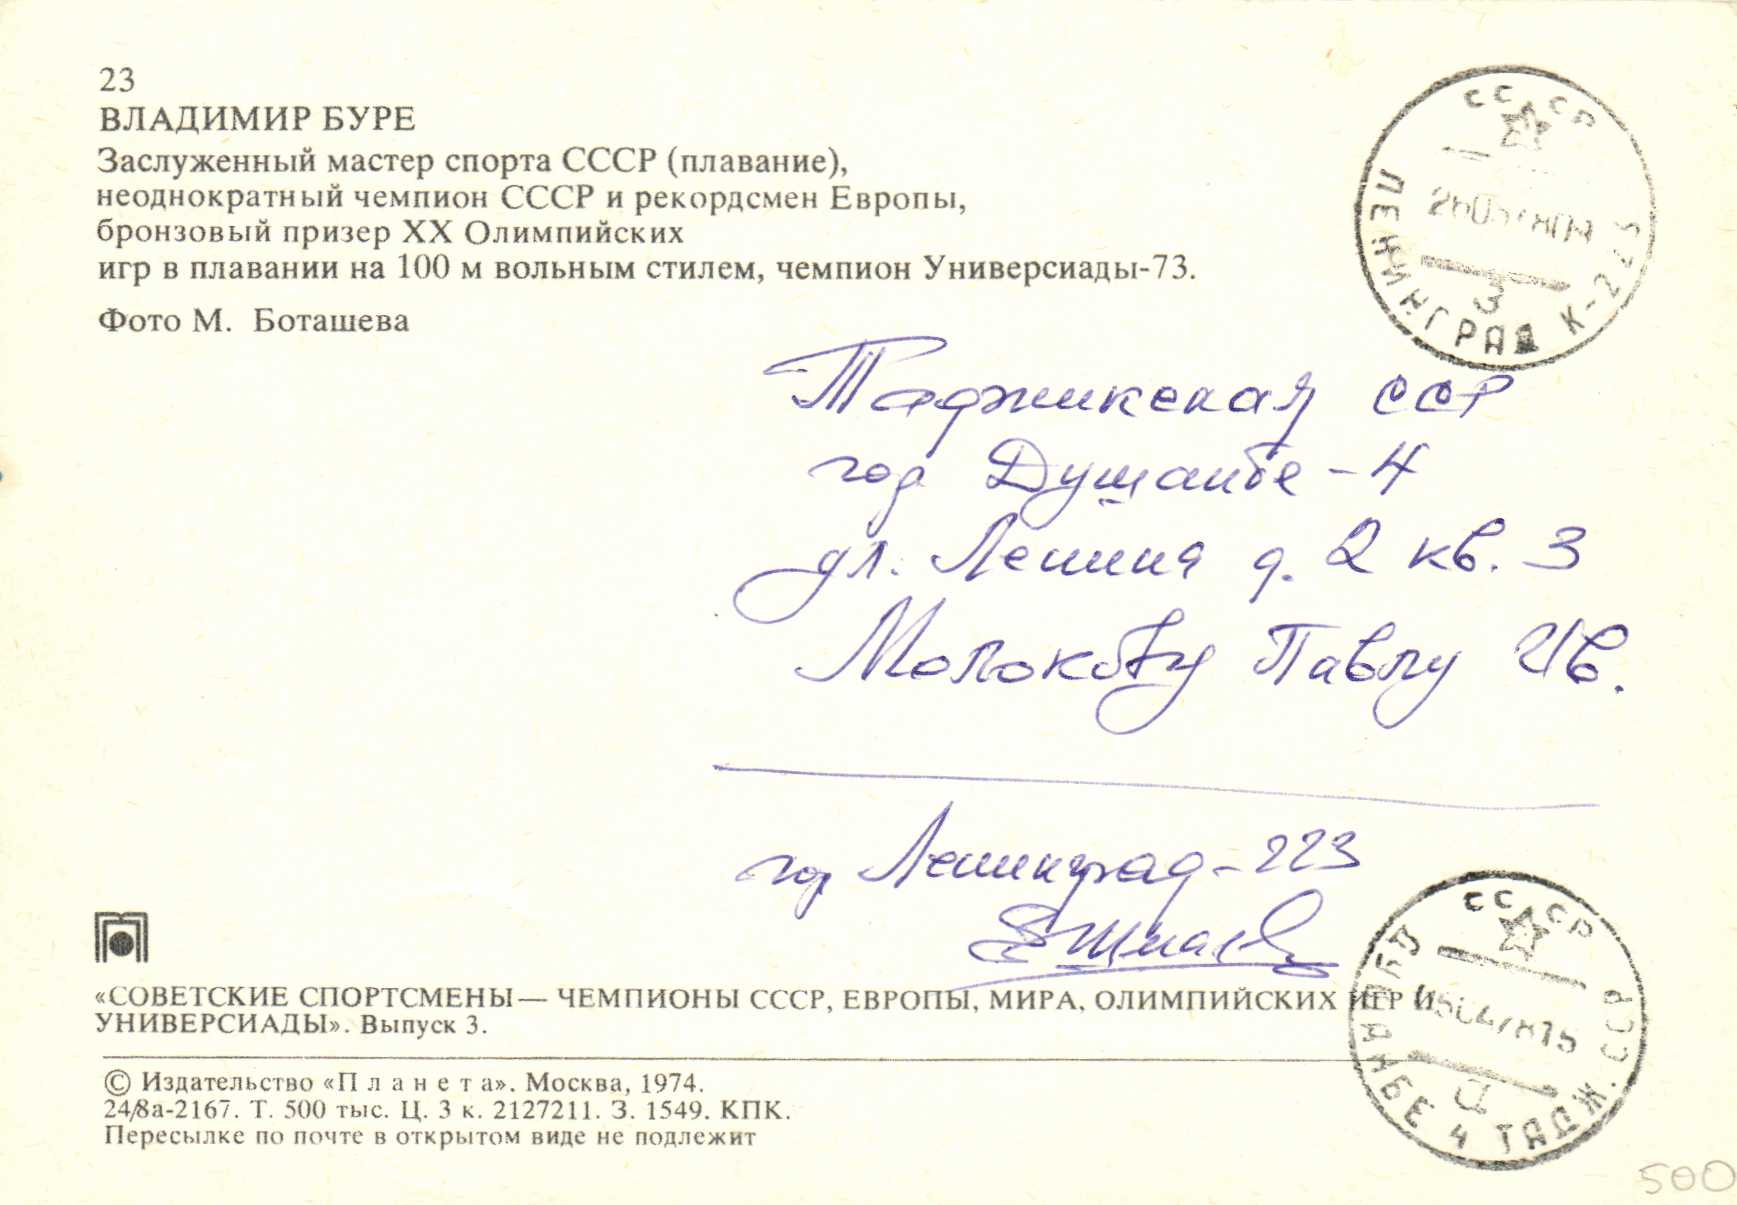 23
ВЛАДИМИР БУРЕ
Заслуженный мастер спорта СССР (плавание),
неоднократный чемпион СССР и рекордсмен Европы,
бронзовый призер XX Олимпийских
игр в плавании на 100 м вольным стилем, чемпион Универсиады-73.
Фото М. Боташева
СССР
ЛЕНИНГРАД К-223
3
Таджикская ССР
гор Душанбе-4
ул. Ленина д. 2 кв. 3
Молокову Павлу Ив.
гор Ленинград-223
«СОВЕТСКИЕ СПОРТСМЕНЫ— ЧЕМПИОНЫ СССР, ЕВРОПЫ, МИРА, ОЛИМПИЙСКИХ ИГР И
УНИВЕРСИАДЫ». Выпуск 3.
СССР
ДУШАНБЕ 4 ТАДЖ. ССР
© Издательство «П л а н е т а». Москва, 1974.
24/8а-2167. Т. 500 тыс. Ц. 3 к. 2127211. З. 1549. КПК.
Пересылке по почте в открытом виде не подлежит
500